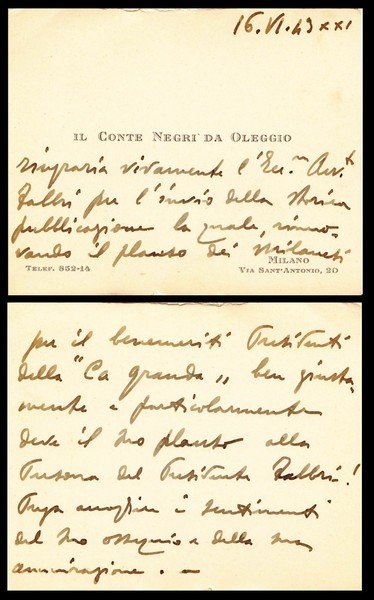 16.VI.43 XXI
IL CONTE NEGRI DA OLEGGIO
ringrazia vivamente l'Ecc.mo Avv.to
Fabbri per l'invio della storica
pubblicazione la quale, rinno-
vando il plauso dei Milanesi
MILANO
TELEF. 852-14 VIA SANT'ANTONIO, 20
per il benemeriti Presidenti
della "Ca granda" ben giusta-
mente e particolarmente
deve il suo plauso alla
Persona del Presidente Fabbri!
Prega accogliere i sentimenti
del suo ossequio e della sua
ammirazione. -